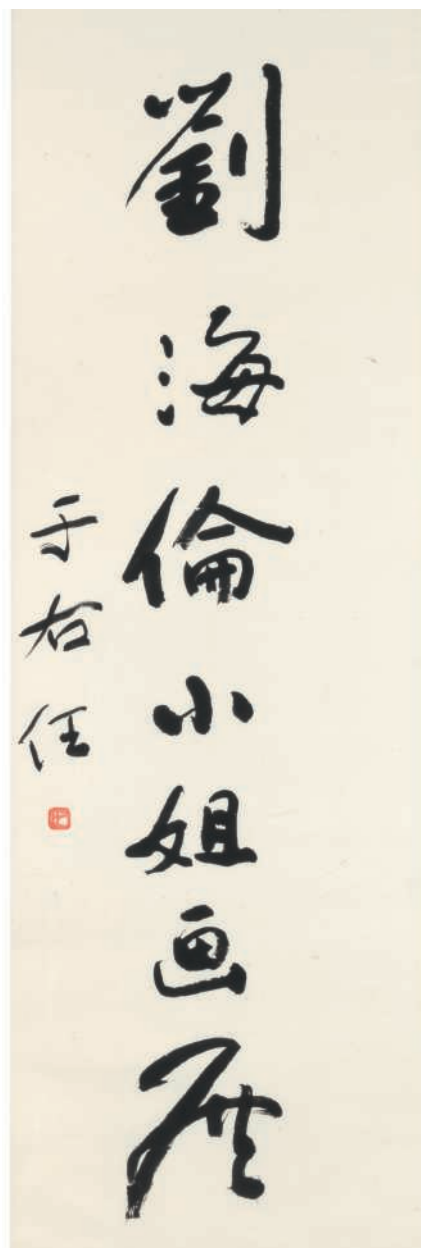 劉海倫小姐画展
于右任